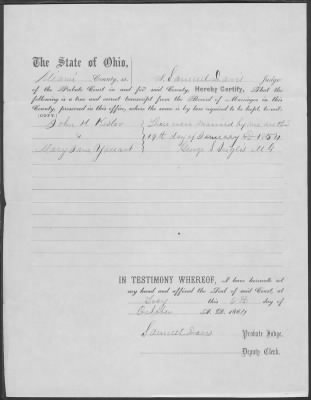 The State of Ohio,
Miami County, ss. I, Samuel Davis Judge
of the Probate Court in and for said County, Hereby Certify, That the
following is a true and correct transcript from the Record of Marriages in this
County, preserved in this office, where the same is by law required to be kept, to-wit:
(COPY)
John H. These were married by me on this
& 19th day of January AD 185
Mary Jane George S. M.G.
IN TESTIMONY WHEREOF, I have hereunto set
my hand and affixed the Seal of said Court, at
Troy this 6th day of
October A. D. 186
Samuel Davis
Probate Judge.
Deputy Clerk.